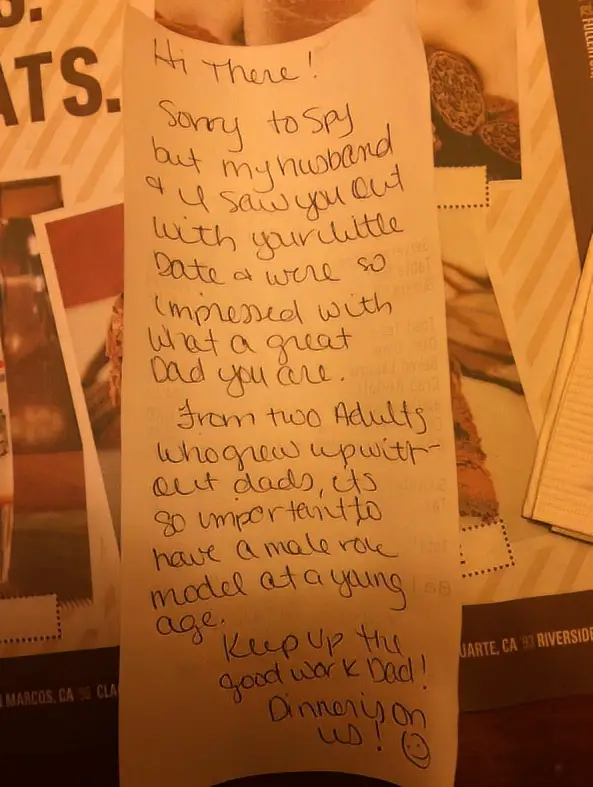 S.
ATS.
Hi There!
Sorry to spy
but my husband
& I saw you out
with your little
Date & were so
impressed with
what a great
Dad you are.
From two Adults
who grew up with-
out dads, its
so important to
have a male role
model at a young
age.
Keep up the
good work Dad!
Dinner is on
us! ☺
N MARCOS, CA '96 CLA
UARTE, CA '93 RIVERSIDE